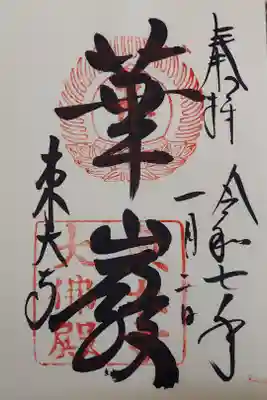 奉拝
令和七年
一月二日
華厳
東大寺
東大寺
大佛殿